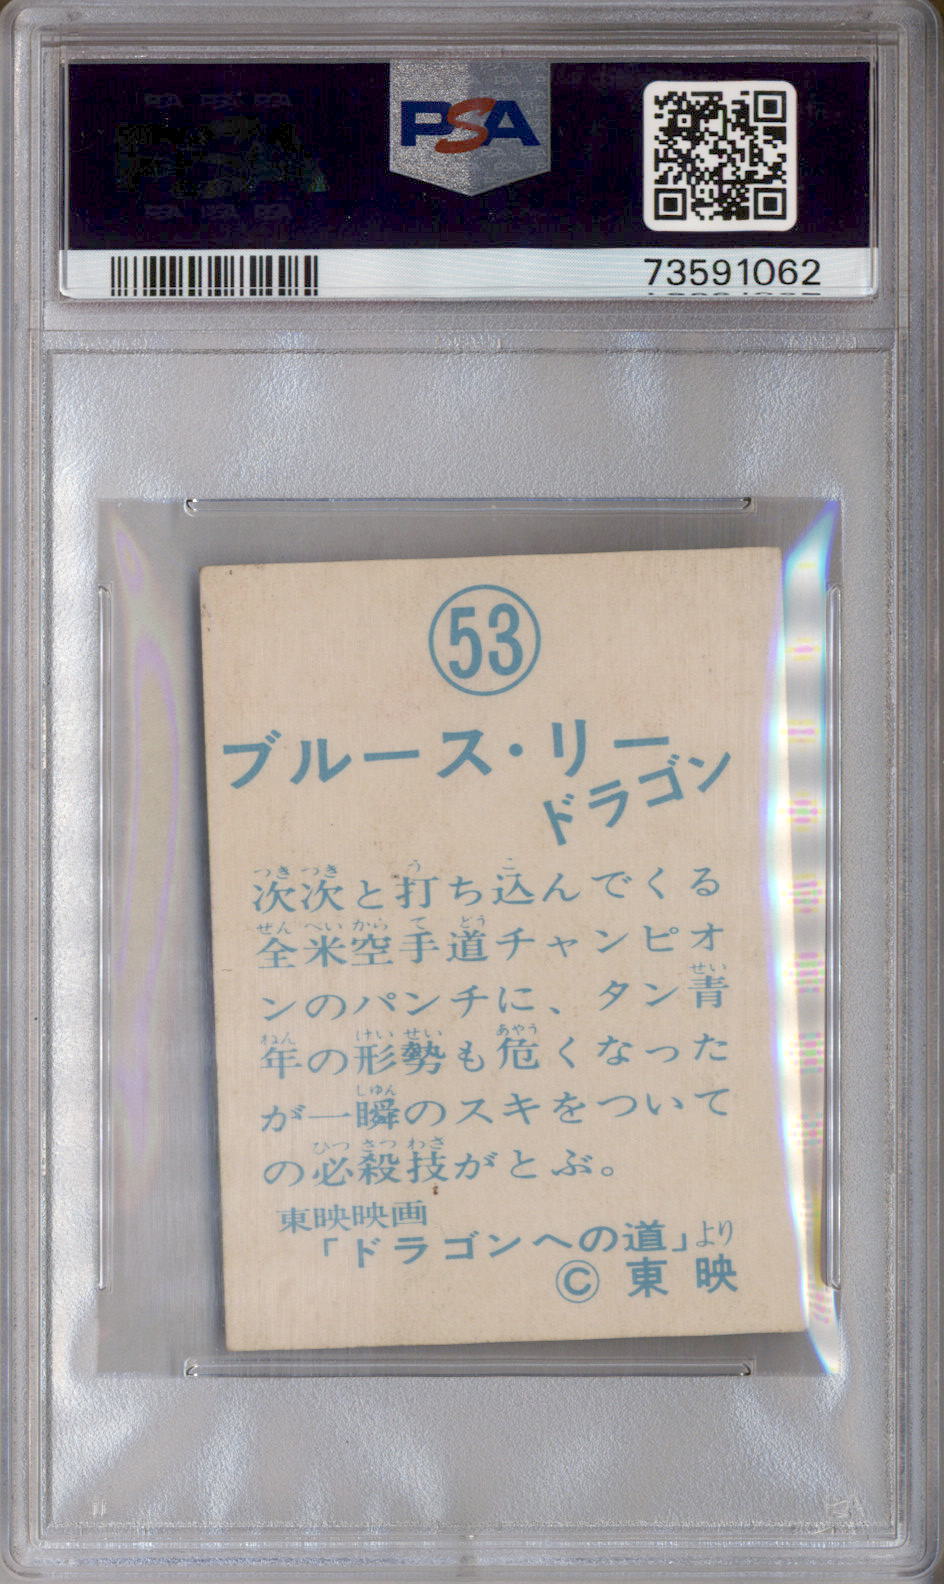 PSA
73591062
53
ブルース・リー
ドラゴン
次次と打ち込んでくる
全米空手道チャンピオ
ンのパンチに、タン青
年の形勢も危くなった
が一瞬のスキをついて
の必殺技がとぶ。
東映映画
「ドラゴンへの道」より
©東映